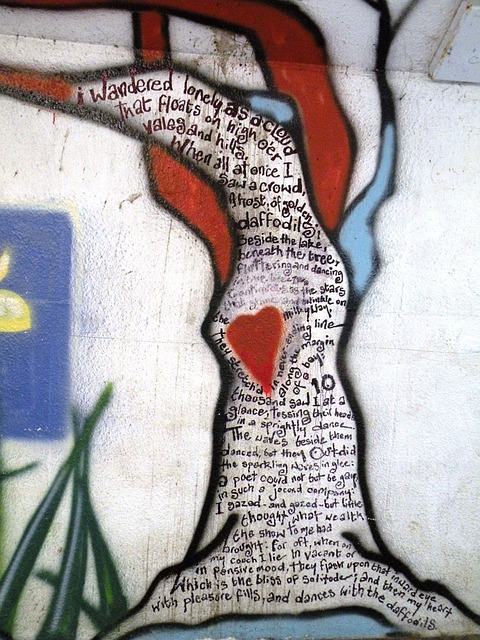 i wandered lonely as a cloud
That floats on high o'er
vales and hills,
When all at once I
saw a crowd,
A host, of golden
daffodils;
Beside the lake,
beneath the trees,
fluttering and dancing
in the breeze
Continuous as the stars
that shine and twinkle on
the milky way,
They stretch'd in never ending line
along the margin
of a bay:
10
thousand saw I at a
glance, tossing their heads
in a sprightly dance
The waves beside them
danced, but they Outdid
the sparkling waves in glee:
a poet could not but be gay
in such a jocund company:
I gazed - and gazed - but little
thought what wealth
the show to me had
brought: for oft, when on
my couch I lie in vacant or
in pensive mood, they flash upon that inward eye
Which is the bliss of solitude; and then my heart
with pleasure fills, and dances with the daffodils.